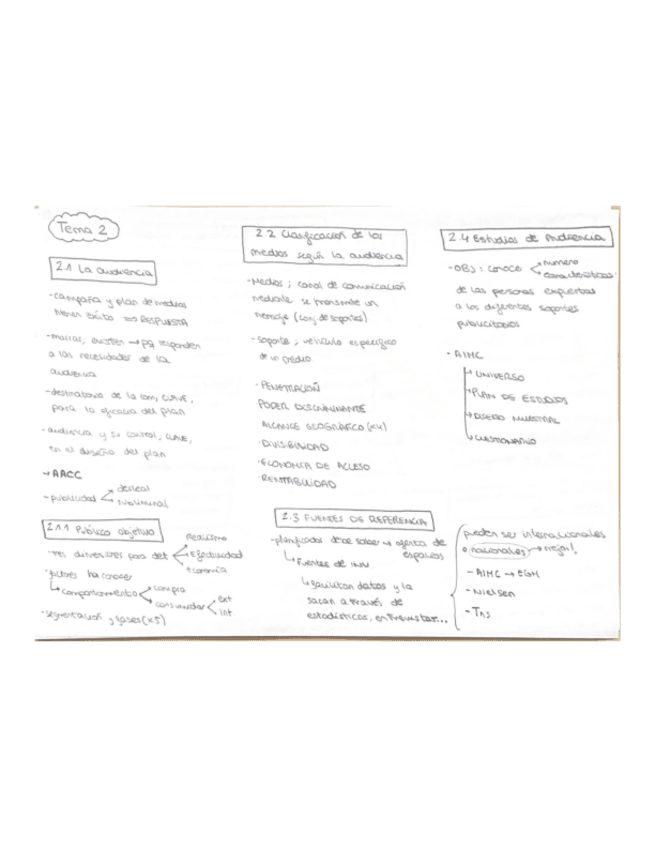 Tema 2
2.1 La audiencia
- campaña y plan de medios
tienen éxito => RESPUESTA
- marcas; existen → pq responden
a las necesidades de la
audiencia
- destinatario de la com, CLAVE,
para la eficacia del plan
- audiencia y su control, CLAVE,
en el diseño del plan
→ AACC
- publicidad desleal
subliminal
2.1.1 Público objetivo
- tres dimensiones para det Realismo
Efectividad
Economía
- factores ha conocer
comportamiento compra
consumidor ext
int
- segmentación y fases (x5)
2.2 Clasificación de los
medios según la audiencia
- Medios; canal de comunicación
mediante se transmite un
mensaje (conj de soportes)
- soporte; vehículo específico
de un medio
- PENETRACIÓN
PODER DISCRIMINANTE
- ALCANCE GEOGRÁFICO (x4)
- DIVISIBILIDAD
- ECONOMÍA DE ACCESO
- RENTABILIDAD
2.3 FUENTES DE REFERENCIA
- planificador debe saber → oferta de
espacios
Fuentes de INV
facilitan datos y la
sacan a través de
estadísticas, entrevistas...
pueden ser internacionales
o nacionales → mejor!
- AIMC → EGM
- Nielsen
- TNS
2.4 Estudios de Audiencia
- OBJ: conoce número
características
de las personas expuestas
a los diferentes soportes
publicitarios
- AIMC
UNIVERSO
PLAN DE ESTUDIOS
DISEÑO MUESTRAL
CUESTIONARIO